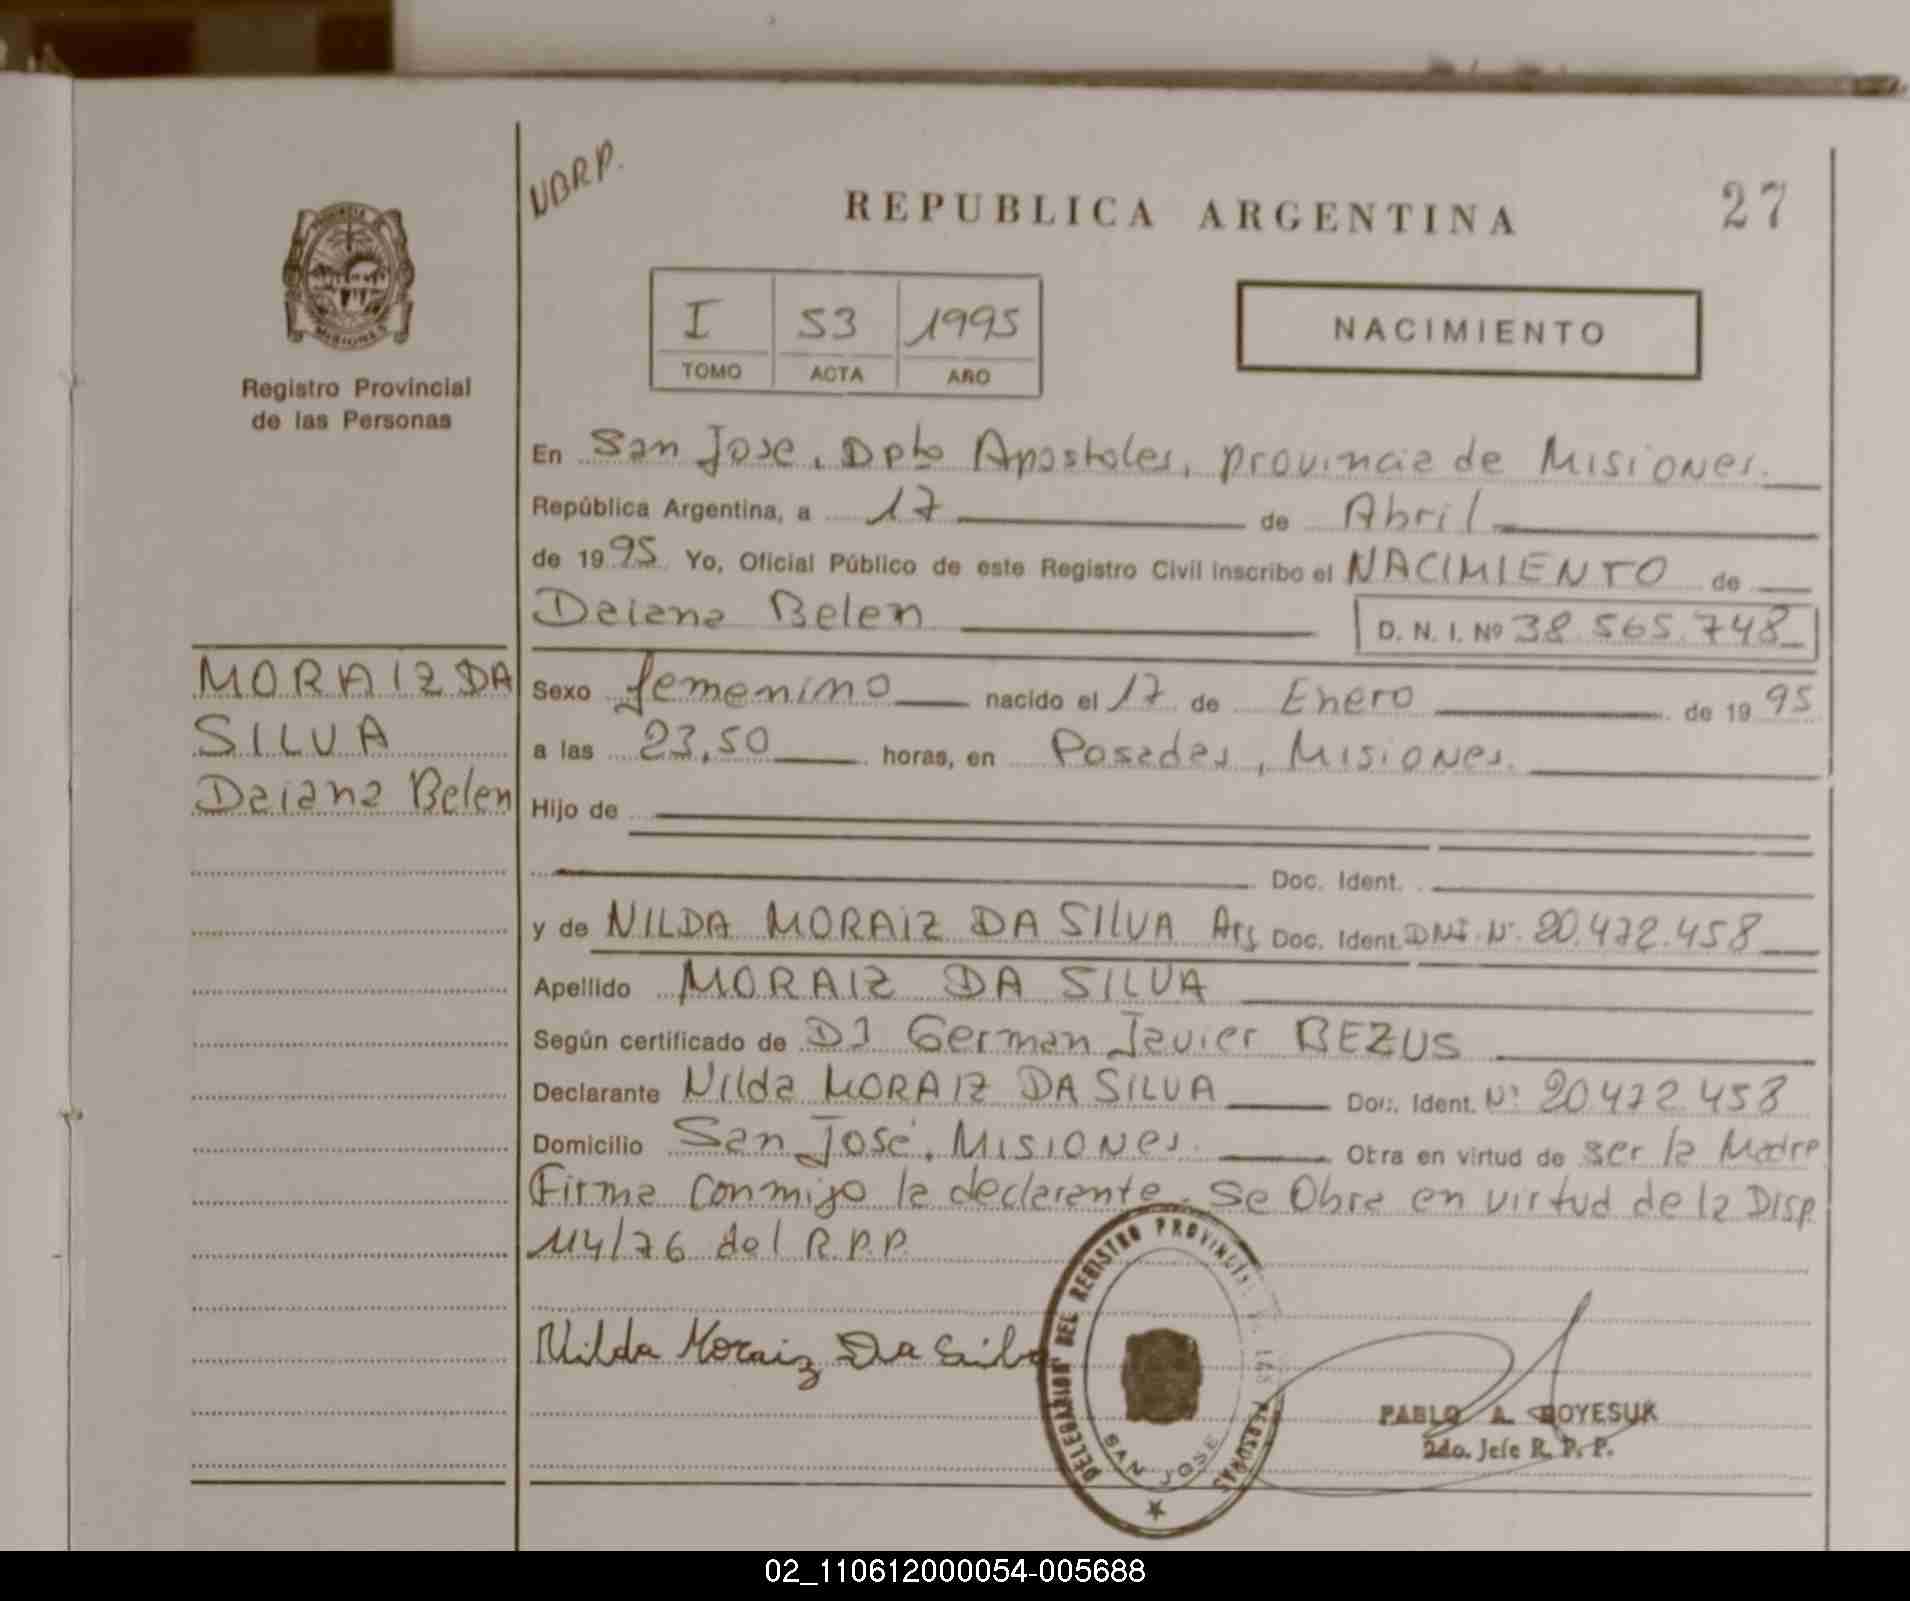 UBRP.
REPUBLICA ARGENTINA
27
MISIONES
Registro Provincial
de las Personas
I 53 1995
TOMO ACTA AÑO
NACIMIENTO
En San Jose, Dpto Apostoles, provincia de Misiones.
República Argentina, a 17 de Abril
de 1995 Yo, Oficial Público de este Registro Civil inscribo el NACIMIENTO de
Daiana Belen D. N. I. Nº 38.565.748
MORAIZ DA
SILVA
Daiana Belen
Sexo femenino nacido el 17 de Enero de 1995
a las 23,50 horas, en Posadas, Misiones.
Hijo de
Doc. Ident.
y de NILDA MORAIZ DA SILVA Arg Doc. Ident. DNI. Nº. 20.472.458
Apellido MORAIZ DA SILVA
Según certificado de German Javier BEZUS
Declarante Nilda MORAIZ DA SILVA Doc. Ident. Nº 20.472.458
Domicilio San José, Misiones. Obra en virtud de ser la Madre
Firma conmigo la declarante. Se Obra en virtud de la Disp.
114/76 del R.P.P.
Nilda Moraiz Da Silva
DELEGACION DEL REGISTRO PROVINCIAL DE LAS PERSONAS
SAN JOSE
PABLO A. BOYESUK
2do. Jefe R. P. P.
02_110612000054-005688